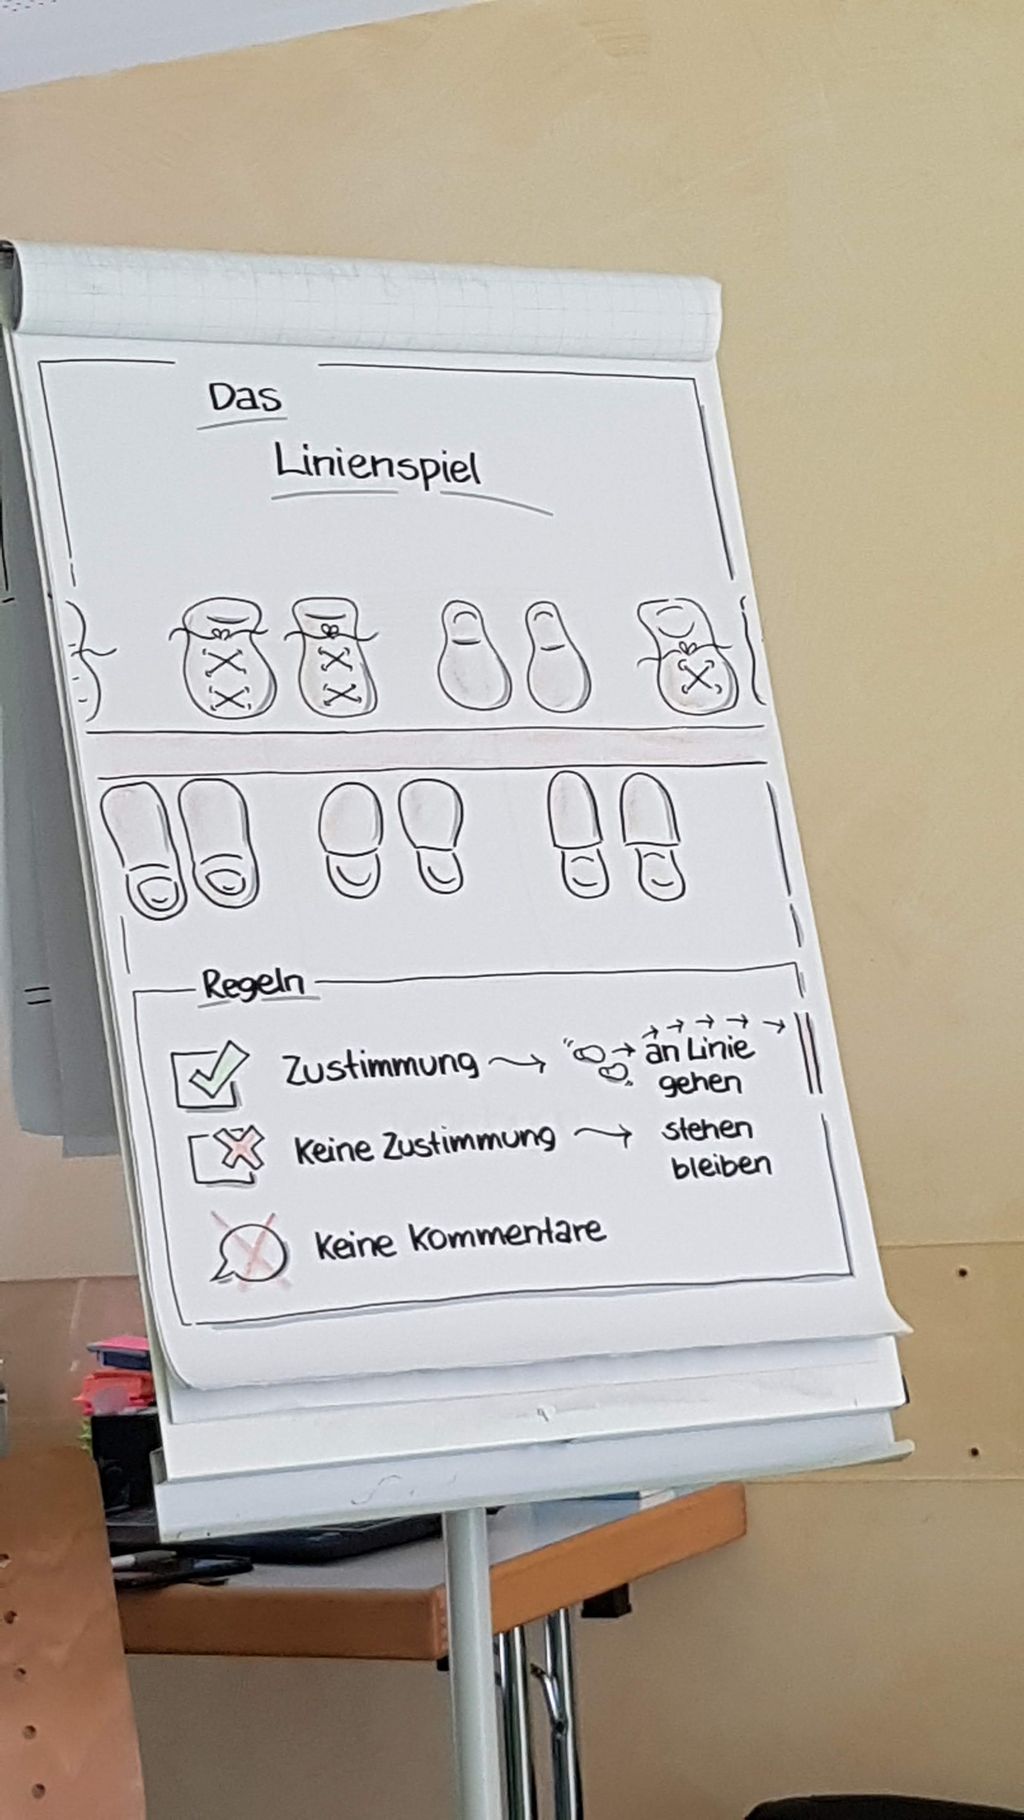 Das
Linienspiel
Regeln
Zustimmung → an Linie
gehen
Keine Zustimmung → stehen
bleiben
Keine Kommentare